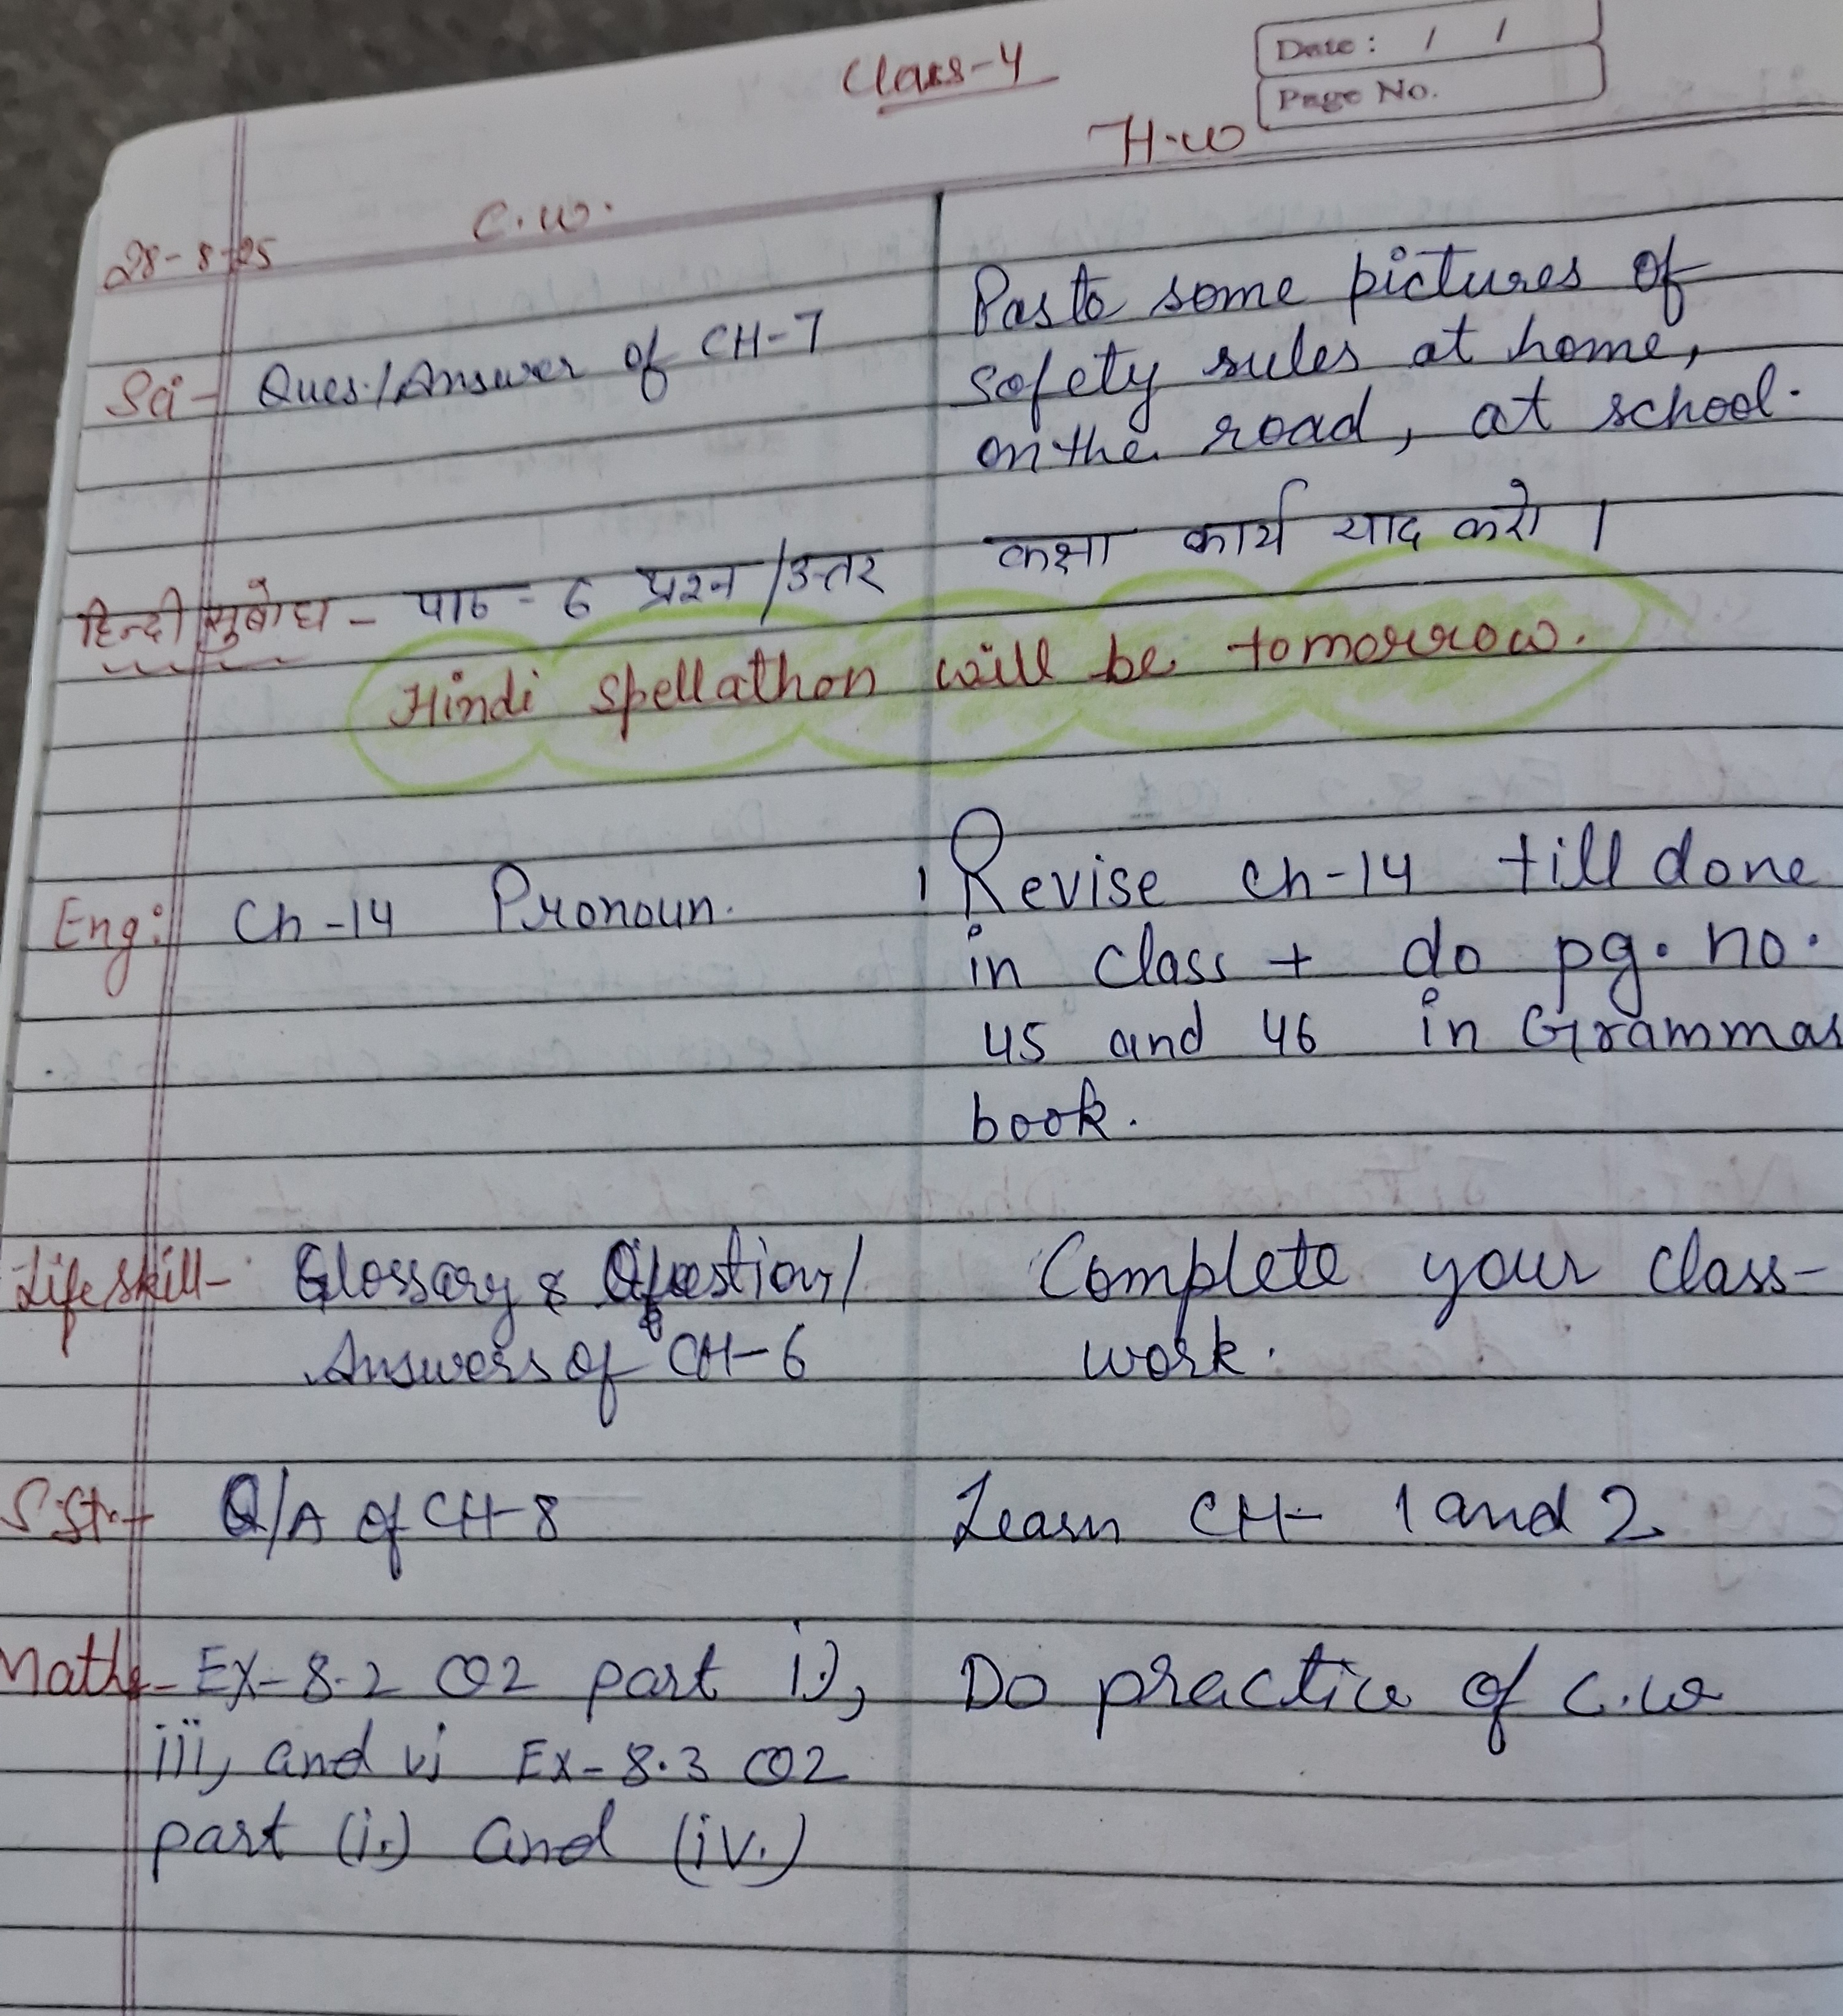 Class-4
Date : / /
Page No.
H.w
C.w.
28-8-25
Sci- Ques./Answer of CH-7
Paste some pictures of
safety rules at home,
on the road, at school.
हिन्दी सुबोध - पाठ - 6 प्रश्न/उत्तर
कक्षा कार्य याद करो ।
Hindi Spellathon will be tomorrow.
Eng: Ch-14 Pronoun.
Revise ch-14 till done
in class + do pg. no.
45 and 46 in Grammar
book.
Life skill- Glossary & Question/
Answers of CH-6
Complete your class-
work.
S.St.- Q/A of CH-8
Learn CH- 1 and 2
Maths- Ex-8.2 Q2 part i),
iii, and vi Ex-8.3 Q2
part (i.) and (iv.)
Do practice of c.w